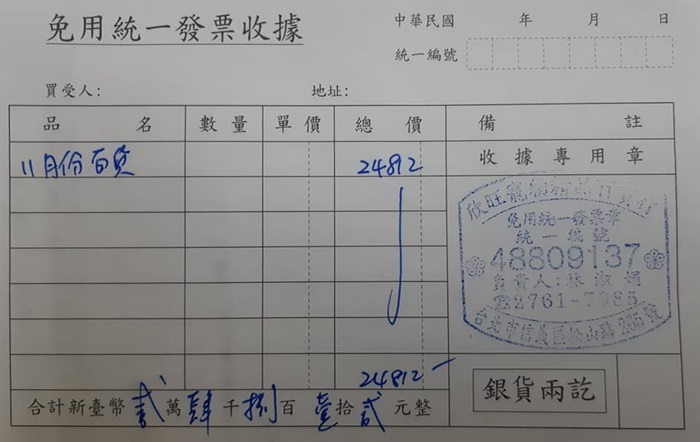 免用統一發票收據
中華民國 年 月 日
統一編號
買受人： 地址：
品名 數量 單價 總價 備註
11月份百貨 24812 收據專用章
欣旺寵物
免用統一發票章
統一編號
48809137
負責人：林淑娟
☎2761-7985
台北市信義區松山路265號
24812
合計新臺幣 貳萬肆千捌百壹拾貳元整
銀貨兩訖